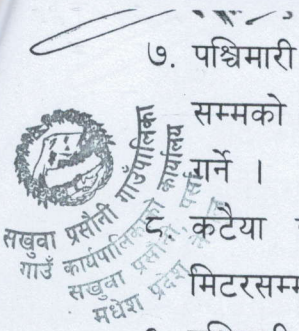 ७. पश्चिमारी
सम्मको
गर्ने ।
८. कटैया
मिटरसम्म
सखुवा प्रसौनी गाउँपालिका
गाउँ कार्यपालिकाको कार्यालय
सखुवा प्रसौनी, पर्सा
मधेश प्रदेश